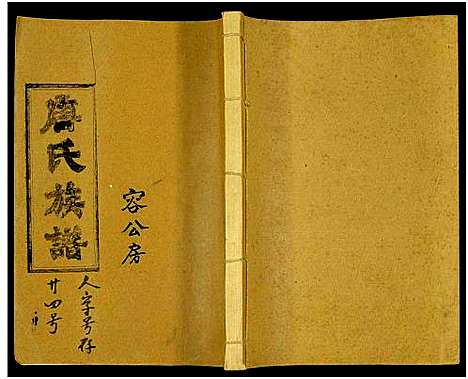 唐氏族譜
容公房
人字号存
廿四号